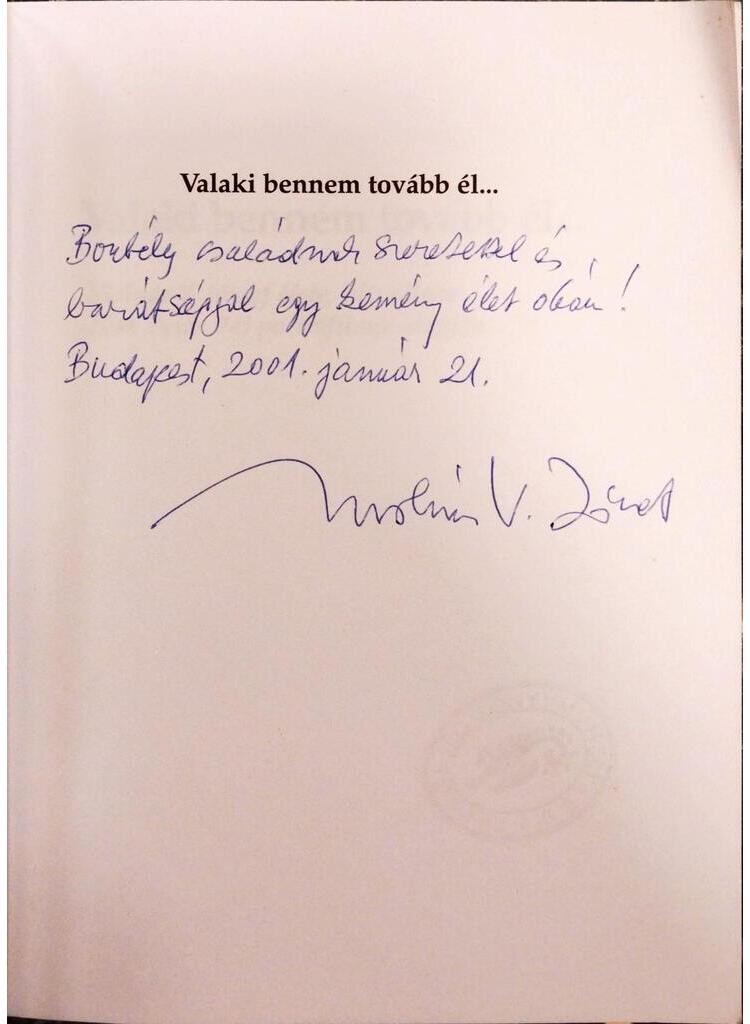 Valaki bennem tovább él...
Borbély családnak szeretettel és
barátsággal egy kemény élet okán!
Budapest, 2001. január 21.
Molnár V. József